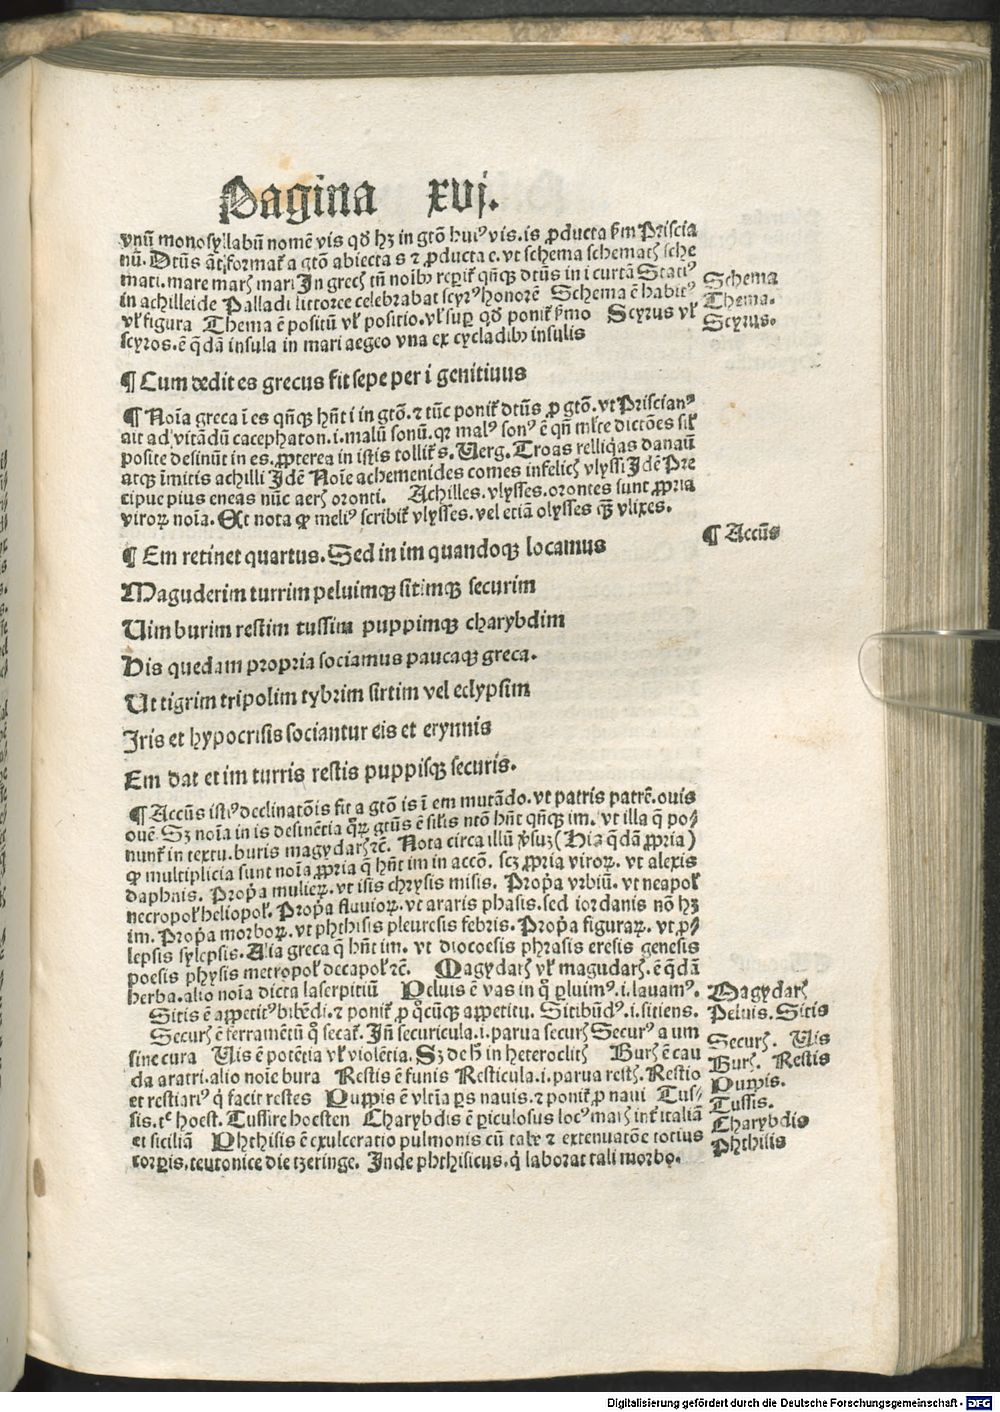 Pagina xvj.
vnū monosyllabū nomē vis qđ hꝫ in gtō huiꝰ vis. is ꝓducta ẜm Priscia
nū. Dtūs āt format᷑ a gtō abiecta s ⁊ ꝓducta e. vt schema schematꝭ sche
mati. mare marꝭ mari In grecꝭ tn̄ noībꝫ reꝑit᷑ qn̄qꝫ dtūs in i curtā Statiꝰ
in achilleide Palladi littoree celebrabat scyrꝰ honorē Schema ē habitꝰ
vl᷑ figura Thema ē positū vl᷑ positio. vl᷑ suꝑ qđ ponit᷑ ẜmo Scyrus vl᷑
scyros. ē q̄dā insula in mari aegeo vna ex cycladibꝫ insulis
Schema
Thema.
Scyrus.
¶ Cum dedit es grecus fit sepe per i genitiuus
¶ Noīa greca ī es qn̄qꝫ hn̄t i in gtō. ⁊ tūc ponit᷑ dtūs ꝓ gtō. vt Priscianꝰ
ait ad vitādū cacephaton. i. malū sonū. qꝛ malꝰ sonꝰ ē qn̄ ml̄te dictōes sil᷑
posite desinūt in es. ꝓpterea in istis tollit᷑ s. Uerg. Troas relliq̇as danaū
atqꝫ īmitis achilli Idē Noīe achemenides comes infelicꝭ vlyssi Idē Pre
cipue pius eneas nūc acrꝭ oronti. Achilles. vlysses. orontes sunt ꝓpria
viroꝝ noīa. Et nota ꝙ meliꝰ scribit᷑ vlysses. vel etiā olysses qꝫ̄ vlixes.
¶ Em retinet quartus. Sed in im quandoqꝫ locamus
¶ Accūs
Maguderim turrim peluimqꝫ sitimqꝫ securim
Uim burim restim tussim puppimqꝫ charybdim
His quedam propria sociamus paucaqꝫ greca.
Ut tigrim tripolim tybrim sirtim vel eclypsim
Iris et hypocrisis sociantur eis et erynnis
Em dat et im turris restis puppisqꝫ securis.
¶ Accūs istiꝰ declinatōis fit a gtō is ī em mutādo. vt patris patrē. ouis
ouē. Sꝫ noīa in is desinētia q̄ꝝ gtūs ē sil᷑is ntō hn̄t qn̄qꝫ im. vt illa q̄ po⸗
nunt᷑ in textu. buris magydarꝭ ⁊c̄. Nota circa illū v̓suꝫ (Hia q̄dā ꝓpria)
ꝙ multiplicia sunt noīa ꝓpria q̄ hn̄t im in accō. scꝫ ꝓpria viroꝝ. vt alexis
daphnis. Prop̓a mulieꝝ. vt isis chrysis misis. Prop̓a vrbiū. vt neapol᷑
necropol᷑ heliopol᷑. Prop̓a fluuioꝝ. vt araris phasis. sed iordanis nō hꝫ
im. Prop̓a morboꝝ. vt phthisis pleuresis febris. Prop̓a figuraꝝ. vt ꝓ⸗
lepsis sylepsis. Alia greca q̄ hn̄t im. vt diocoesis phrasis eresis genesis
poesis physis metropol᷑ decapol᷑ ⁊c̄. Magydarꝭ vl᷑ magudarꝭ. ē q̄dā
herba. alio noīa dicta laserpitiū Peluis ē vas in q̊ pluimꝰ. i. lauamꝰ.
Sitis ē appetitꝰ bibēdi. ⁊ ponit᷑ ꝓ q̊cūqꝫ appetitu. Sitibūdꝰ. i. sitiens.
Securꝭ ē ferramētū q̊ secat᷑. Jn̄ securicula. i. parua securꝭ Securꝰ a um
sine cura Uis ē potētia vl᷑ violētia. Sꝫ de h̊ in heteroclitꝭ Burꝭ ē cau
da aratri. alio noīe bura Restis ē funis Resticula. i. parua restꝭ. Restio
et restiariꝰ q̇ facit restes Puppis ē vltīa ꝑs nauis. ⁊ ponit᷑ ꝓ naui Tus⸗
sis. tᷓc hoest. Tussire hoesten Charybdis ē ꝑiculosus locꝰ marꝭ int᷑ italiā
et siciliā Phthisis ē exulceratio pulmonis cū tabe ⁊ extenuatōe totius
corꝑis. teutonice die tzeringe. Inde phthisicus. q̇ laborat tali morbo.
Magydarꝭ
Peluis. Sitis
Securꝭ. Uis
Burꝭ. Restis
Puppis.
Tussis.
Charybdis
Phthisis
Digitalisierung gefördert durch die Deutsche Forschungsgemeinschaft - DFG